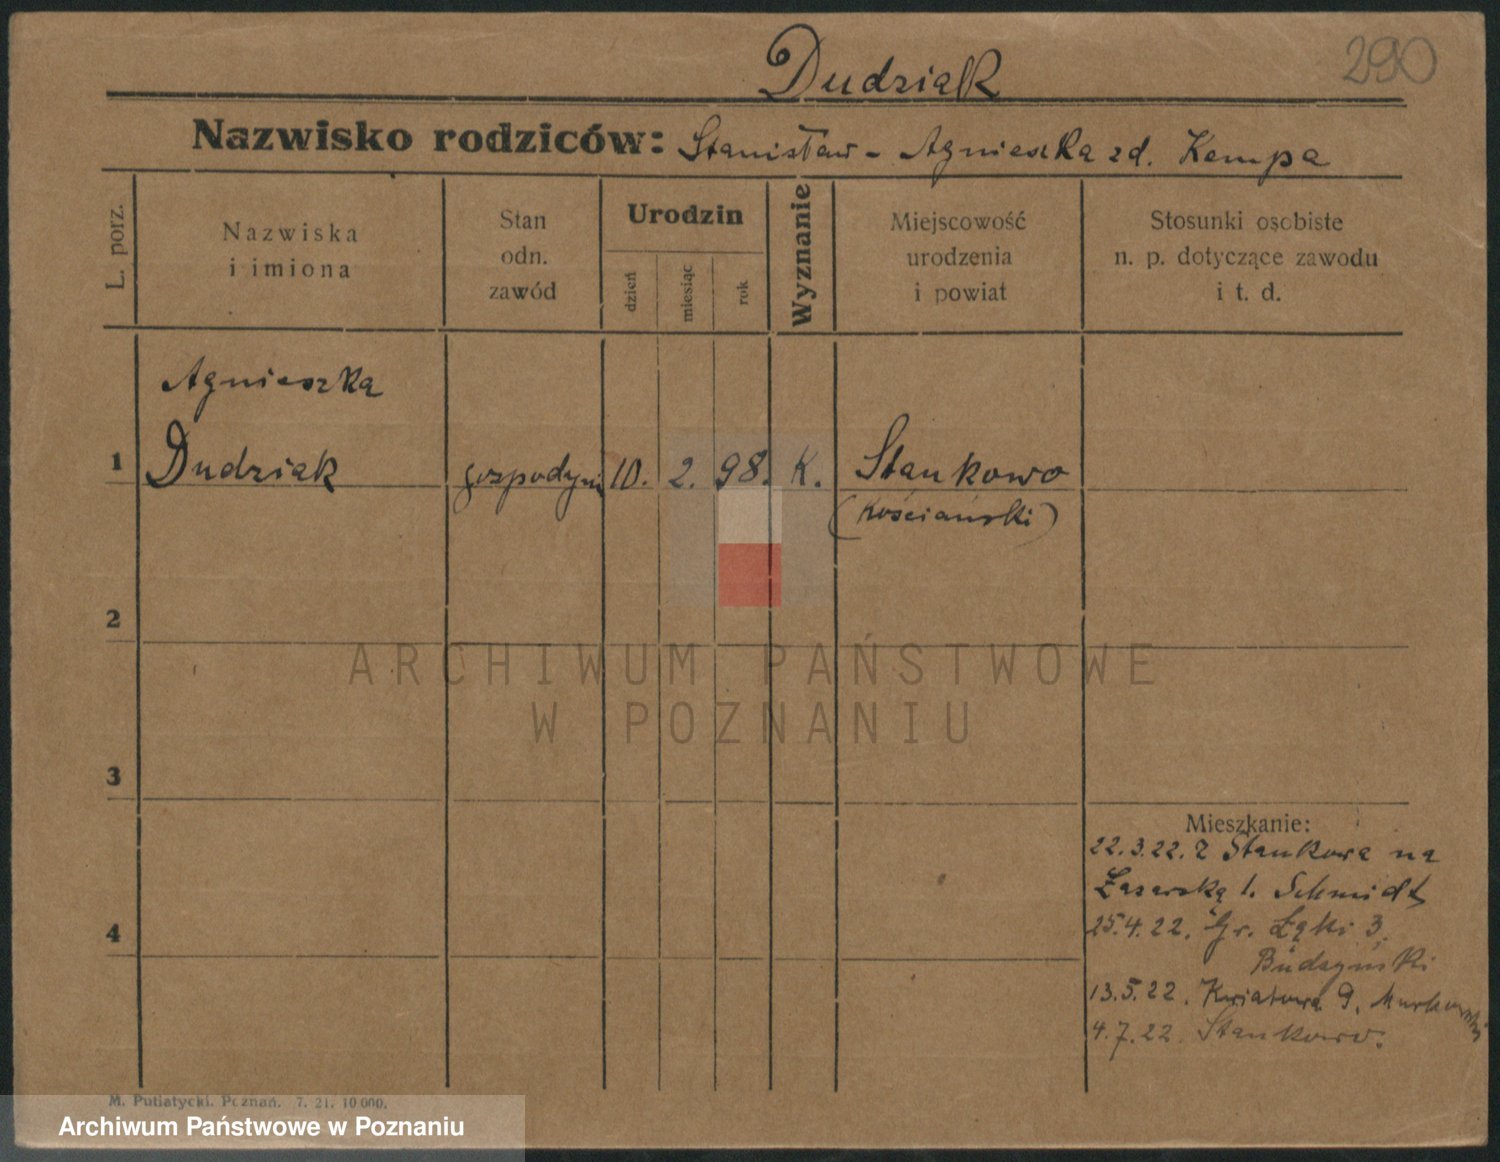 Dudziak
290
Nazwisko rodziców: Stanisław - Agnieszka zd. Kempa
L. porz.
Nazwiska
i imiona
Stan
odn.
zawód
Urodzin
dzień
miesiąc
rok
Wyznanie
Miejscowość
urodzenia
i powiat
Stosunki osobiste
n. p. dotyczące zawodu
i t. d.
Agnieszka
1 Dudziak gospodyni 10. 2. 98. K. Stankowo
(Kościański)
2
ARCHIWUM PAŃSTWOWE
W POZNANIU
3
Mieszkanie:
22.3.22. z Stankowa na
Łazarską 1. Schmidt
4
25.4.22. Gr. Łąki 3.
Budzyński
13.5.22. Kwiatowa 9. Murkowski
4.7.22. Stankowo.
M. Putiatycki. Poznań. 7. 21. 10 000.
Archiwum Państwowe w Poznaniu